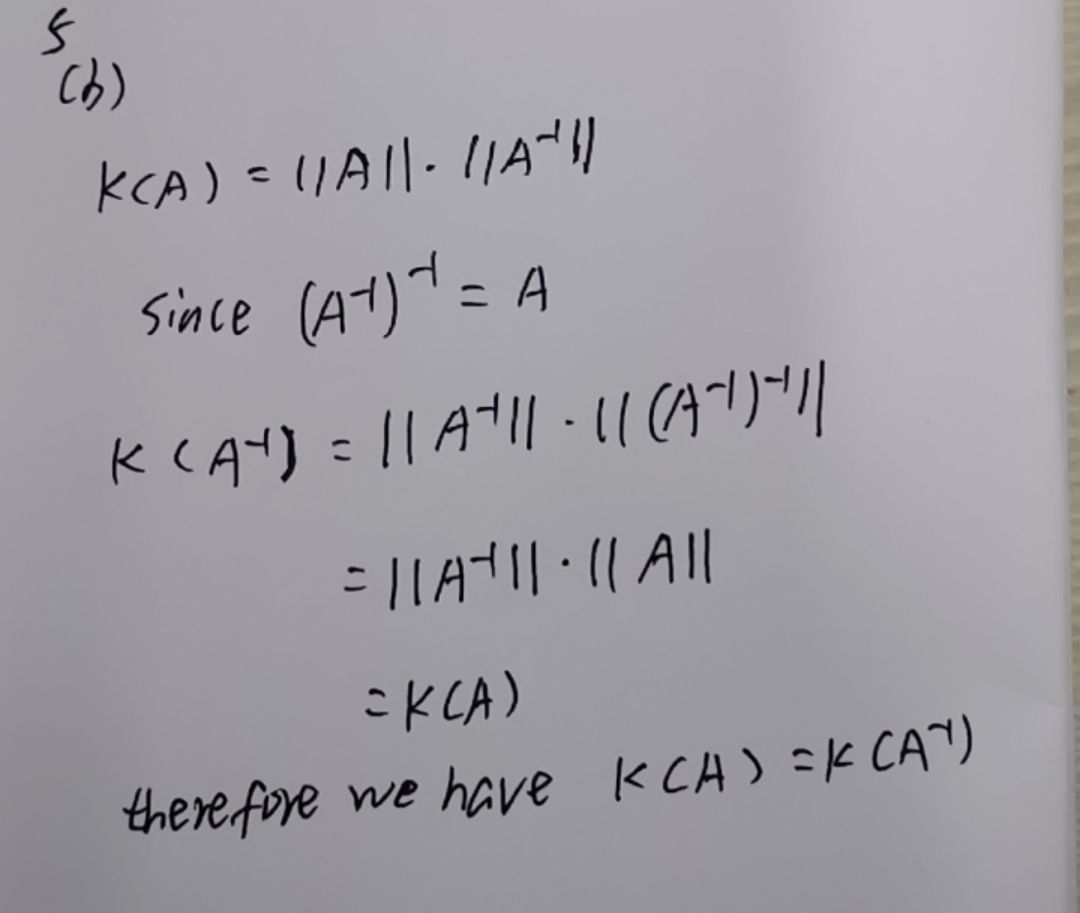 5
(b)
K(A) = ||A||·||A⁻¹||
Since (A⁻¹)⁻¹ = A
K(A⁻¹) = ||A⁻¹||·||(A⁻¹)⁻¹||
= ||A⁻¹||·||A||
= K(A)
therefore we have K(A) = K(A⁻¹)